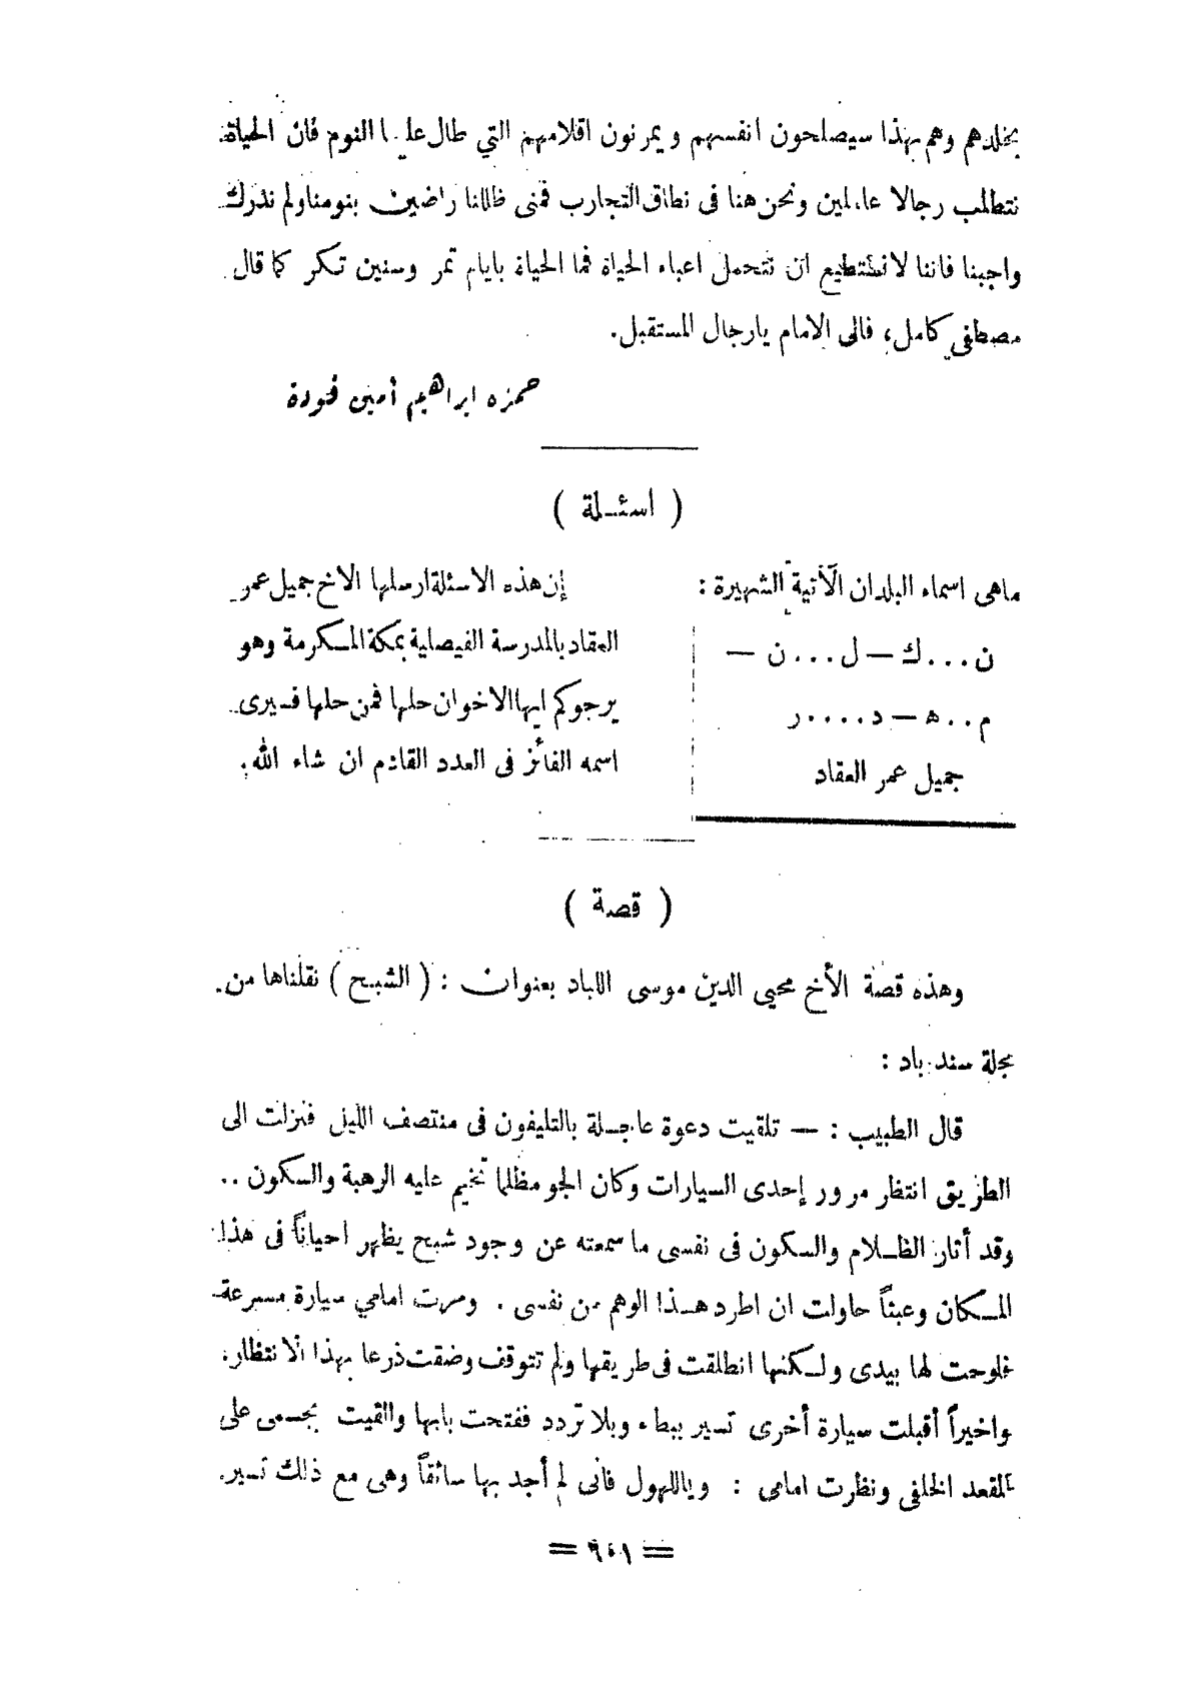 بخلدهم وهم بهذا سيصلحون انفسهم ويمرنون اقلامهم التي طال عليها النوم فان الحياة
تتطلب رجالا عاملين ونحن هنا فى نطاق التجارب فمتى ظللنا راضين بنومنا ولم ندرك
واجبنا فاننا لا نستطيع ان نتحمل اعباء الحياة فما الحياة بايام تمر وسنين تكر كما قال
مصطفى كامل، فالى الامام يارجال المستقبل.
حمزه ابراهيم أمين فودة
( اسئلة )
ماهى اسماء البلدان الآتية الشهيرة :
ن...ك — ل...ن —
م..ه — د....ر
جميل عمر العقاد
إن هذه الاسئلة ارسلها الاخ جميل عمر
العقاد بالمدرسة الفيصلية بمكة المكرمة وهو
يرجوكم ايها الاخوان حلها فمن حلها فسيرى
اسمه الفائز فى العدد القادم ان شاء الله.
( قصة )
وهذه قصة الأخ محيى الدين موسى اللباد بعنوان : ( الشبح ) نقلناها من
مجلة سندباد :
قال الطبيب : — تلقيت دعوة عاجلة بالتليفون فى منتصف الليل فنزلت الى
الطريق انتظار مرور إحدى السيارات وكان الجو مظلما تخيم عليه الرهبة والسكون ..
وقد أثار الظلام والسكون فى نفسى ما سمعته عن وجود شبح يظهر احياناً فى هذا
المكان وعبثاً حاولت ان اطرد هذا الوهم من نفسى . ومرت امامي سيارة مسرعة
فلوحت لها بيدى ولكنها انطلقت فى طريقها ولم تتوقف وضقت ذرعا بهذا الانتظار.
واخيراً أقبلت سيارة أخرى تسير ببطء وبلا تردد ففتحت بابها والقيت بجسمى على
المقعد الخلفى ونظرت امامى : وياللهول فانى لم أجد بها سائقاً وهى مع ذلك تسير.